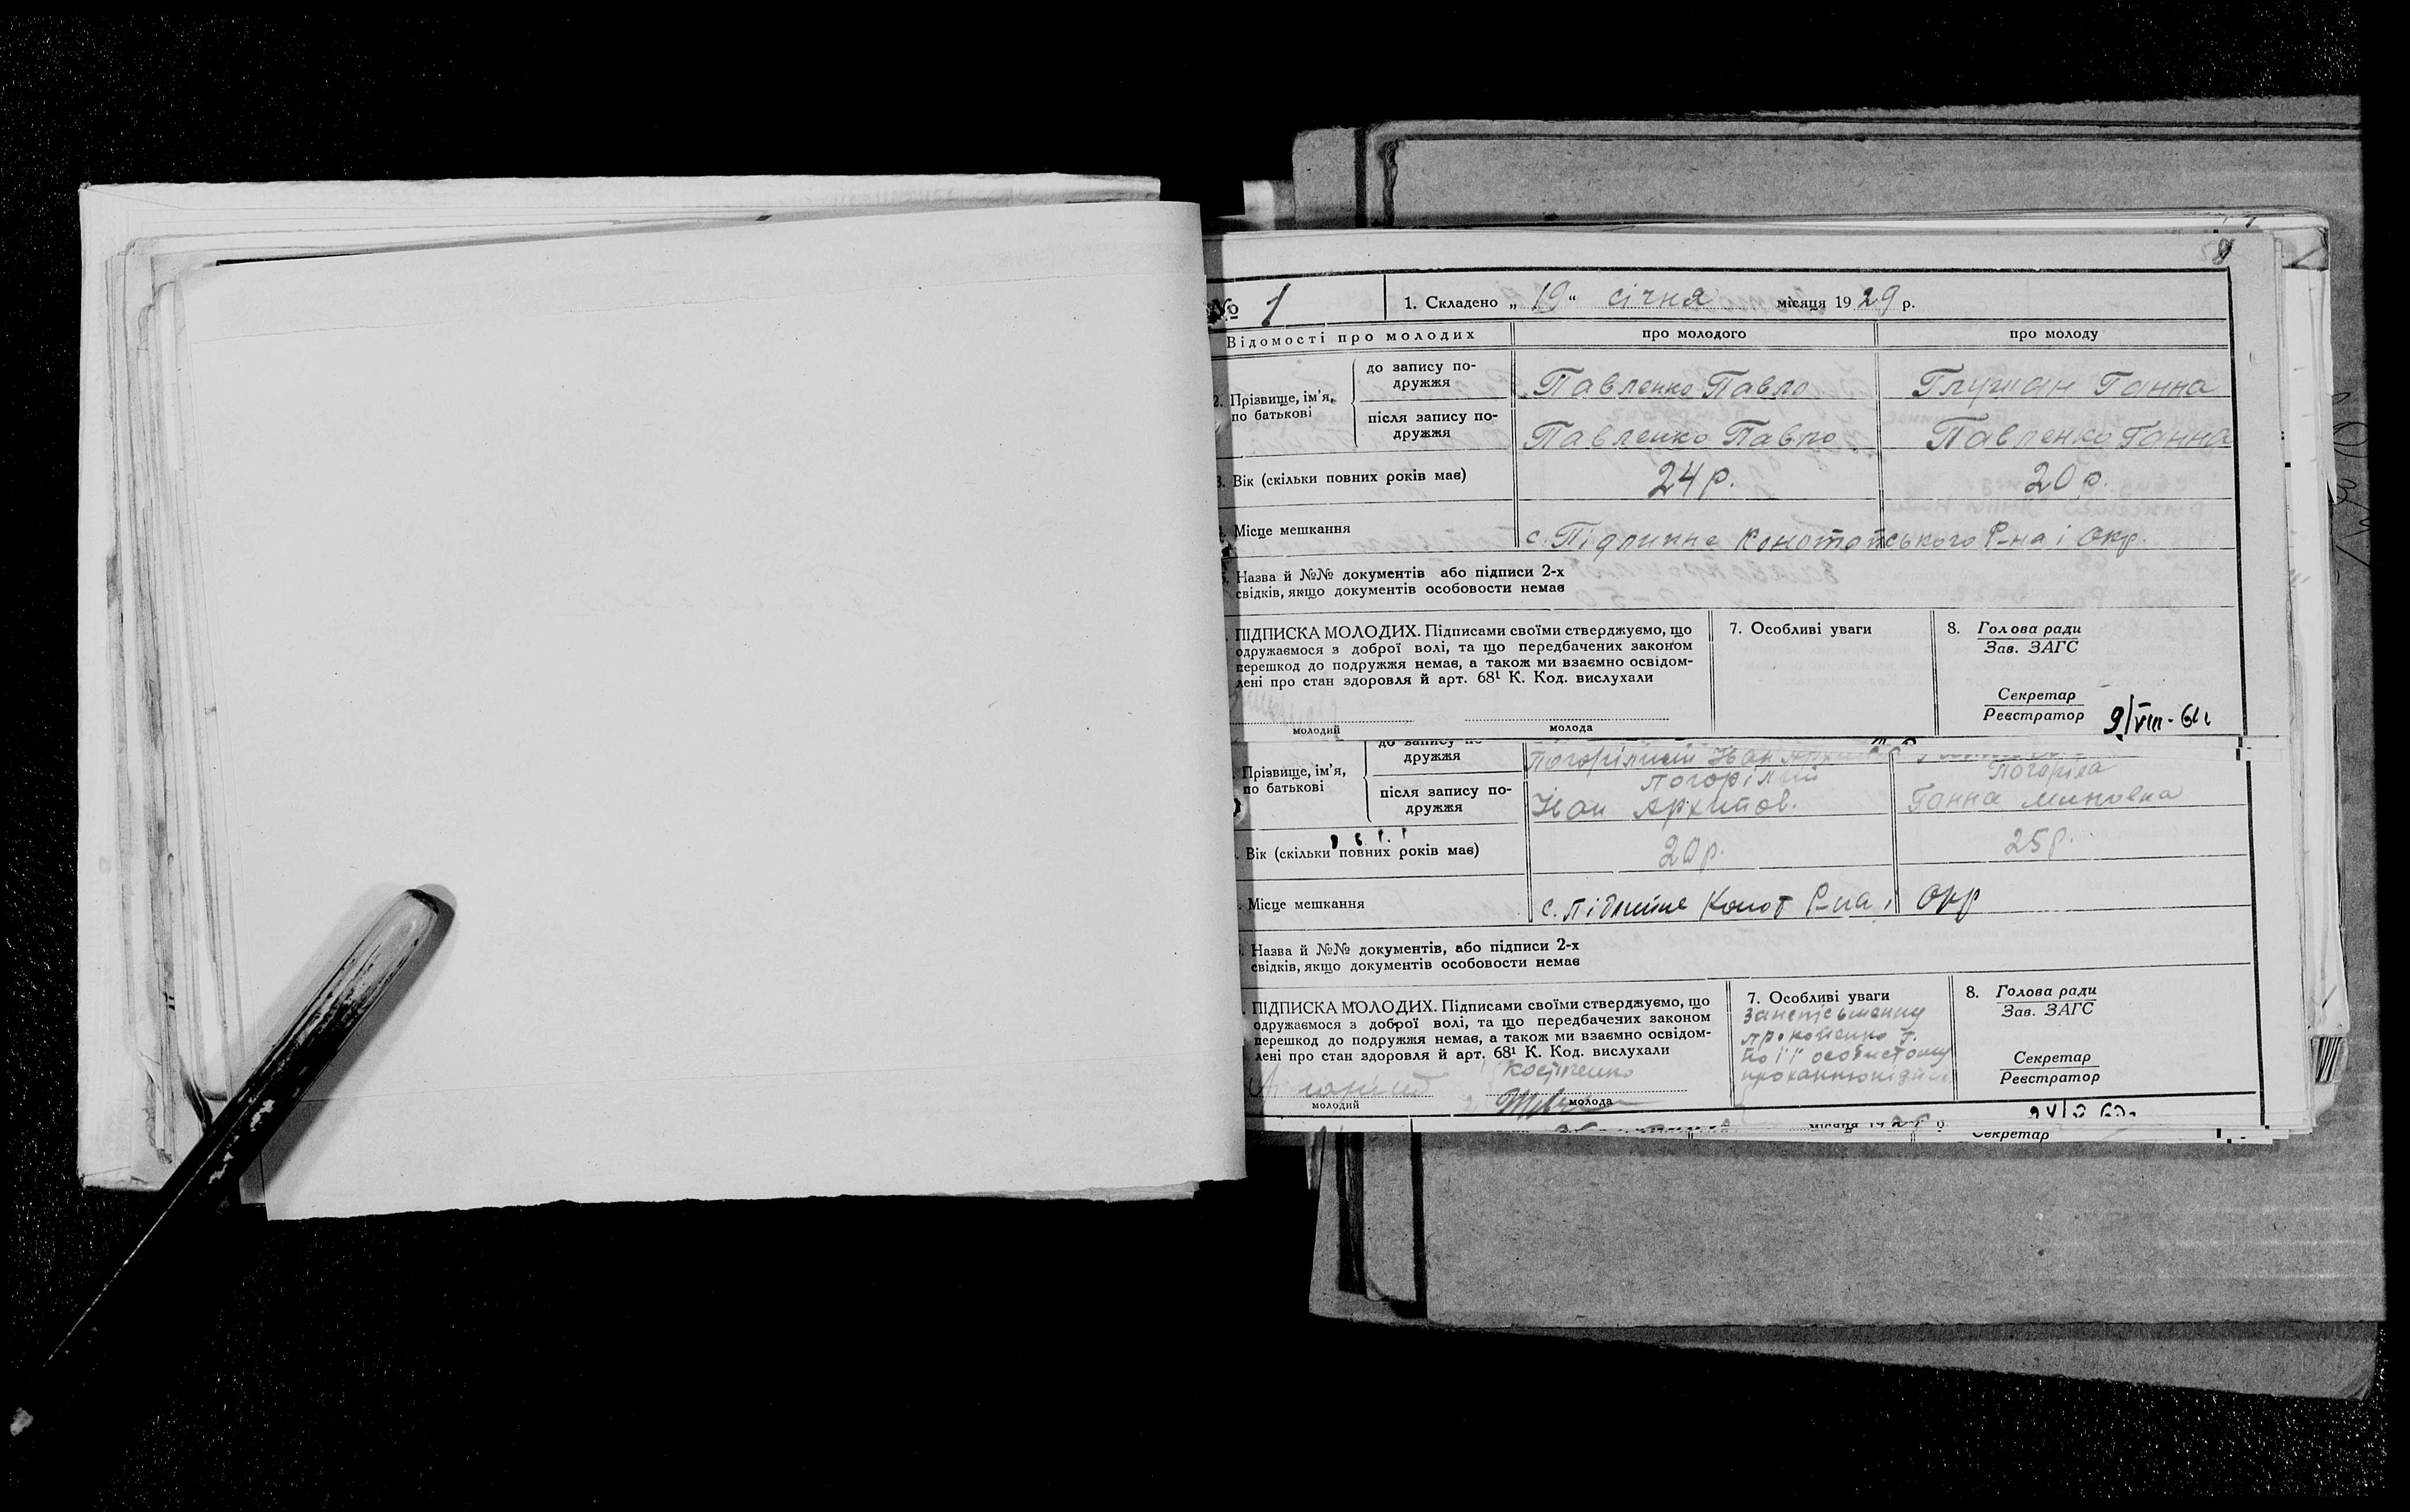 8
№ 1
1. Складено „ 19 “ січня місяця 1929 р.
Відомості про молодих
про молодого
про молоду
2. Прізвище, ім’я, по батькові
до запису по-
дружжя
Павленко Павло
Глушан Ганна
після запису по-
дружжя
Павленко Павло
Павленко Ганна
3. Вік (скільки повних років має)
24 р.
20 р.
Місце мешкання
с. Підлипне Конотопського Р-на і Окр.
Назва й №№ документів або підписи 2-х
свідків, якщо документів особовости немає
ПІДПИСКА МОЛОДИХ. Підписами своїми стверджуємо, що
одружаємося з доброї волі, та що передбачених законом
перешкод до подружжя немає, а також ми взаємно освідом-
лені про стан здоровля й арт. 68¹ К. Код. вислухали
молодий
молода
7. Особливі уваги
8. Голова ради
Зав. ЗАГС
Секретар
Реєстратор
9/VIII-61
Прізвище, ім’я,
по батькові
до запису по-
дружжя
Погорілий Іван
після запису по-
дружжя
Погорілий
Іван Архипов.
Погоріла
Ганна
Вік (скільки повних років має)
20 р.
25 р.
Місце мешкання
с. Підлипне Конот Р-на і Окр
Назва й №№ документів, або підписи 2-х
свідків, якщо документів особовости немає
ПІДПИСКА МОЛОДИХ. Підписами своїми стверджуємо, що
одружаємося з доброї волі, та що передбачених законом
перешкод до подружжя немає, а також ми взаємно освідом-
лені про стан здоровля й арт. 68¹ К. Код. вислухали
молодий
молода
7. Особливі уваги
За неписьменну
Прокопенко Г.
по її особистому
проханню
8. Голова ради
Зав. ЗАГС
Секретар
Реєстратор
місяця 19
Секретар